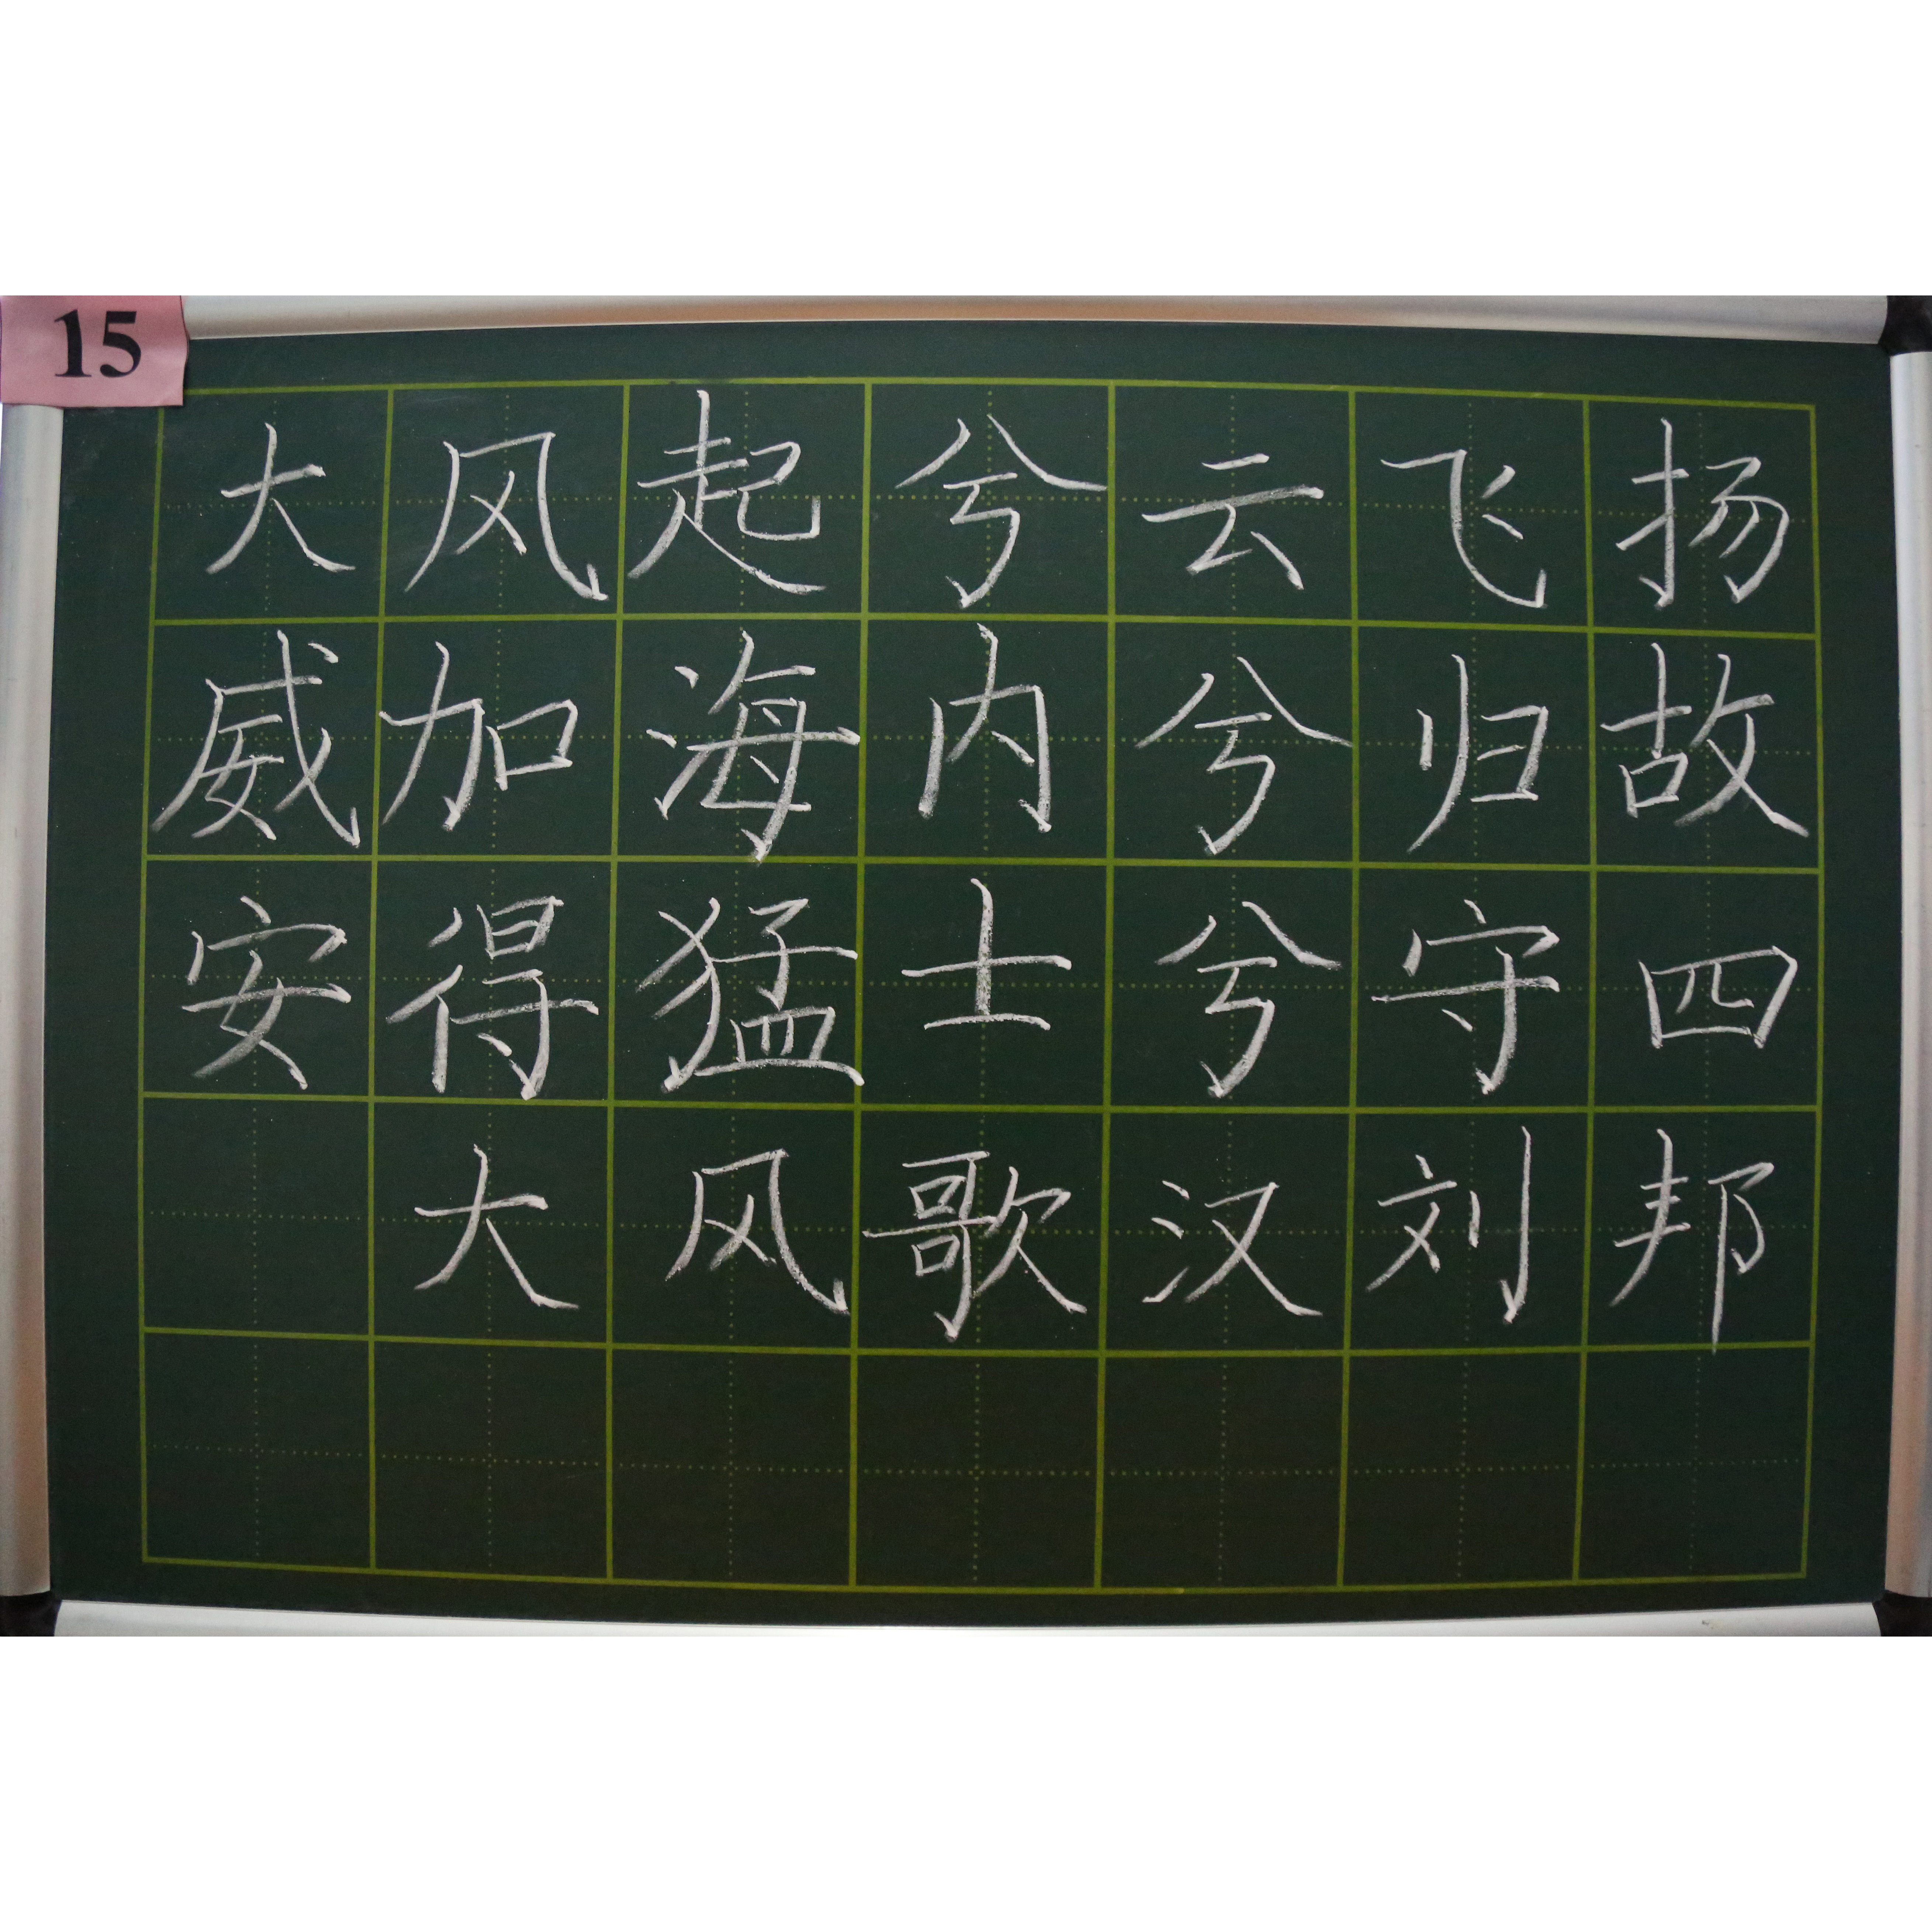 15
大风起兮云飞扬
威加海内兮归故
安得猛士兮守四
大风歌汉刘邦